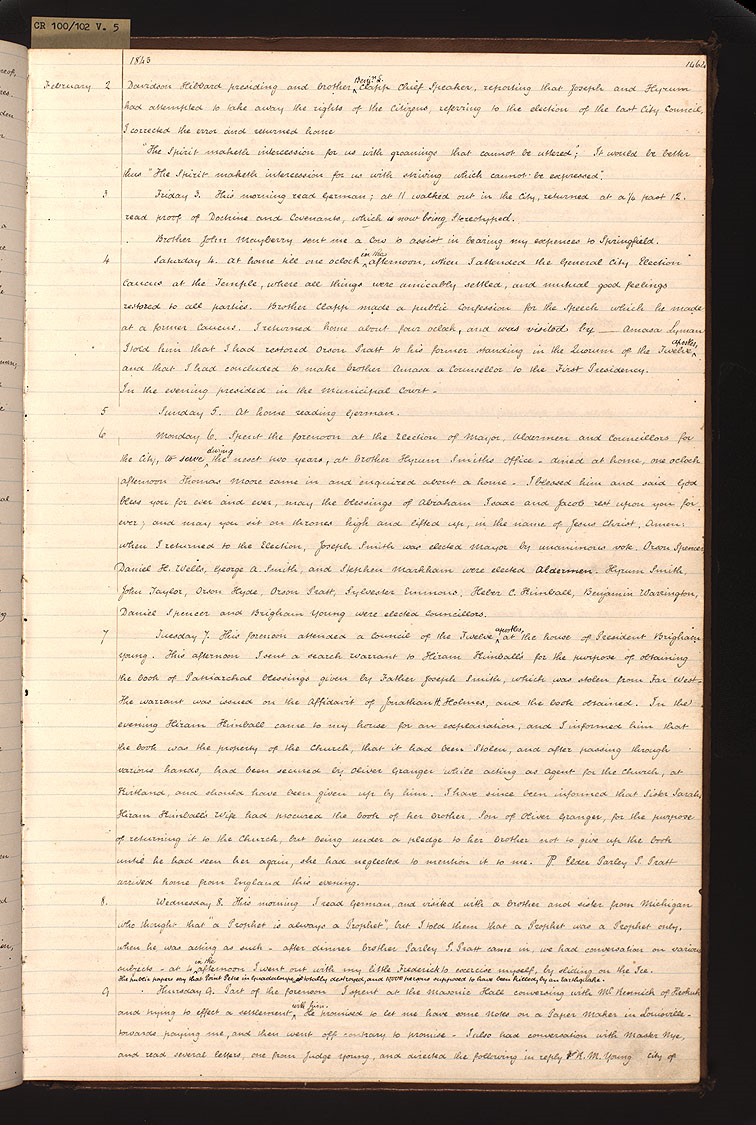 CR 100/102 V. 5
1843
1464
February 2 Davidson Hibbard presiding and brother Benjn. S. Clapp Chief Speaker, reporting that Joseph and Hyrum
had attempted to take away the rights of the Citizens, referring to the election of the last City Council,
I corrected the error and returned home
"The Spirit maketh intercession for us with groanings that cannot be uttered"; It would be better
thus "The Spirit maketh intercession for us with striving which cannot be expressed".
3 Friday 3. This morning read German; at 11 walked out in the City, returned at a 1/4 past 12.
read proof of Doctrine and Covenants, which is now being Stereotyped.
Brother John Mayberry sent me a Cow to assist in bearing my expences to Springfield.
4 Saturday 4. At home till one oclock in the afternoon, when I attended the General City Election
Caucus at the Temple, where all things were amicably settled, and mutual good feelings
restored to all parties. Brother Clapp made a public Confession for the Speech which he made
at a former Caucus. I returned home about four oclock, and was visited by — Amasa Lyman
I told him that I had restored Orson Pratt to his former standing in the Quorum of the Twelve apostles,
and that I had concluded to make brother Amasa a Counsellor to the First Presidency.
In the evening presided in the Municipal Court.
5 Sunday 5. At home reading German.
6 Monday 6. Spent the forenoon at the Election of Mayor, Aldermen and Councillors for
the City, to serve during the next two years, at brother Hyrum Smiths Office - dined at home, one oclock
afternoon Thomas Moore came in and enquired about a home - I blessed him and said God
bless you for ever and ever, may the blessings of Abraham Isaac and Jacob rest upon you for
ever; and may you sit on thrones high and lifted up, in the name of Jesus Christ, Amen.
when I returned to the Election, Joseph Smith was elected Mayor by unanimous vote. Orson Spencer
Daniel H. Wells, George A. Smith, and Stephen Markham were elected Aldermen. Hyrum Smith,
John Taylor, Orson Hyde, Orson Pratt, Sylvester Emmons, Heber C. Kimball, Benjamin Warrington,
Daniel Spencer and Brigham Young were elected Councillors.
7 Tuesday 7. This forenoon attended a Council of the Twelve apostles, at the house of President Brigham
Young. This afternoon I sent a search warrant to Hiram Kimball's for the purpose of obtaining
the book of Patriarchal blessings given by Father Joseph Smith, which was stolen from Far West-
The warrant was issued on the Affidavit of Jonathan H. Holmes, and the book obtained. In the
evening Hiram Kimball came to my house for an explanation, and I informed him that
the book was the property of the Church, that it had been Stolen, and after passing through
various hands, had been secured by Oliver Granger while acting as Agent for the Church, at
Kirtland, and should have been given up by him. I have since been informed that Sister Sarah,
Hiram Kimball's Wife had procured the book of her brother, Son of Oliver Granger, for the purpose
of returning it to the Church, but being under a pledge to her brother not to give up the book
until he had seen her again, she had neglected to mention it to me. P. Elder Parley P. Pratt
arrived home from England this evening.
8. Wednesday 8. This morning I read German, and visited with a brother and sister from Michigan
who thought that "a Prophet is always a Prophet", but I told them that a Prophet was a Prophet only,
when he was acting as such - after dinner brother Parley P. Pratt came in, we had conversation on various
subjects - at 4 in the afternoon I went out with my little Frederick to exercise myself, by sliding on the Ice.
The public papers say that Point Petre in Guadaloupe, totally destroyed, and 10,000 persons supposed to have been killed, by an Earthquake.
9 Thursday 9. Part of the forenoon I spent at the Masonic Hall conversing with Mr. Remick of Keokuk
and trying to effect a settlement with him. He promised to let me have some notes on a Paper Maker in Louisville-
towards paying me, and then went off contrary to promise - I also had conversation with Master Nye,
and read several letters, one from Judge Young, and directed the following in reply R. M. Young City of